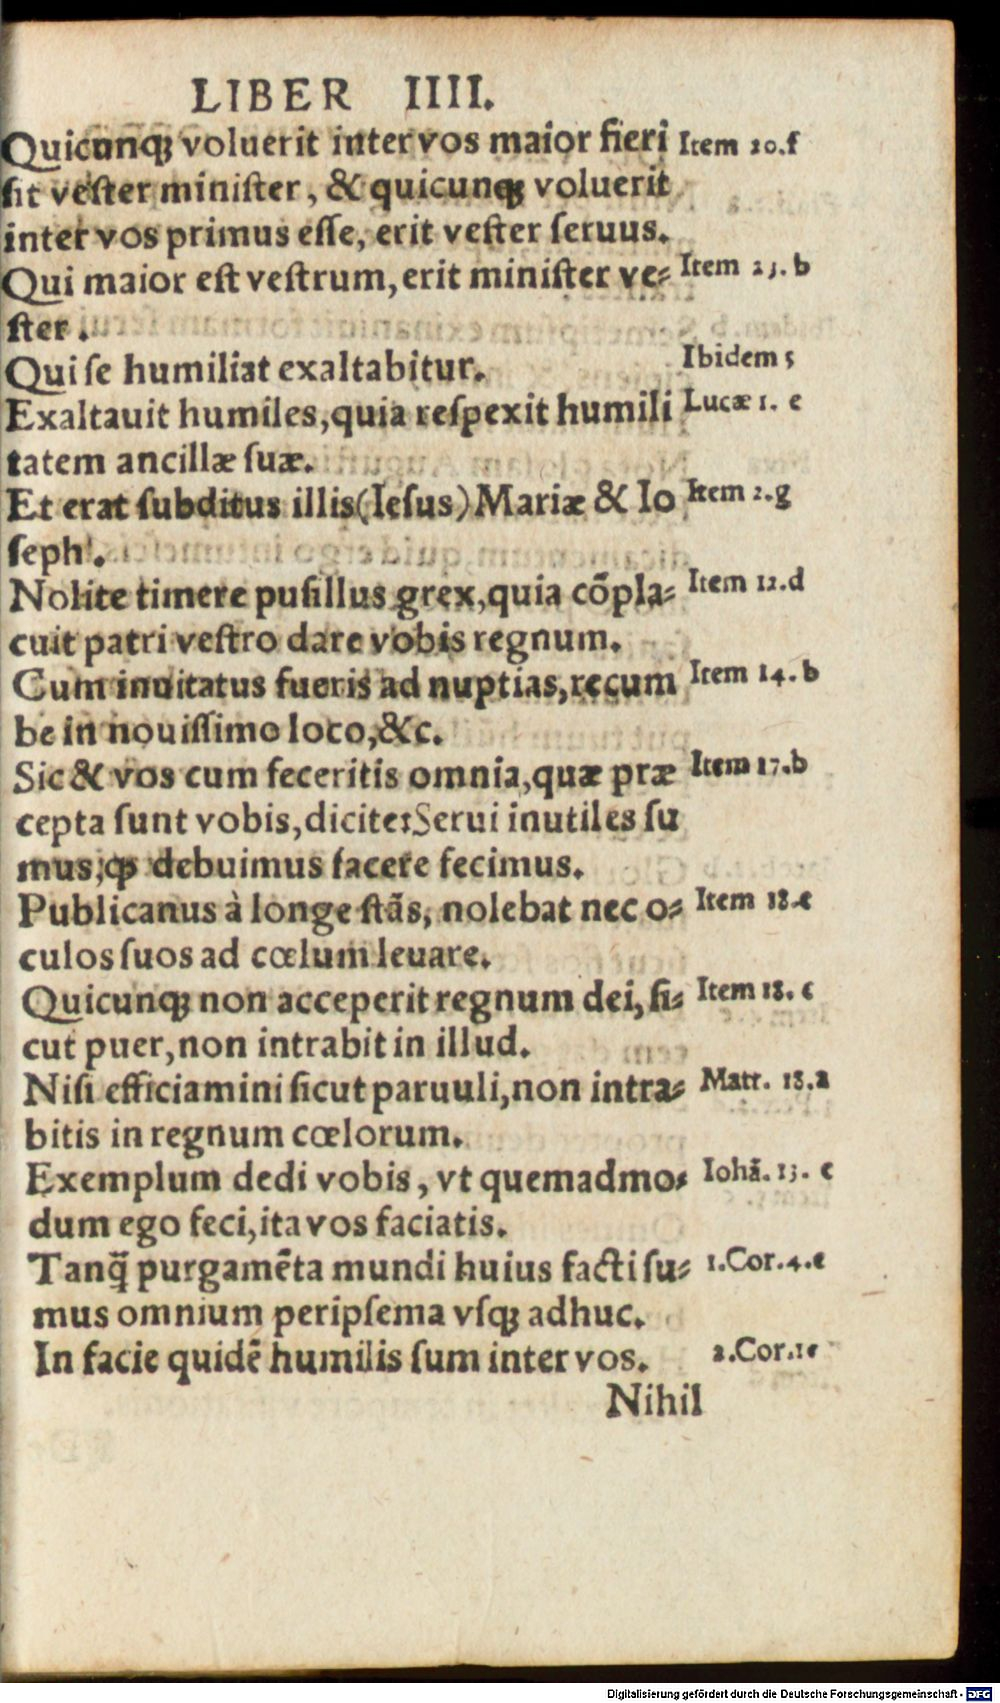 LIBER IIII.
Quicunq; voluerit inter vos maior fieri Item 20.f
ſit veſter miniſter, & quicunq; voluerit
inter vos primus eſſe, erit veſter ſeruus.
Qui maior eſt veſtrum, erit miniſter ve⸗ Item 23. b
ſter.
Qui ſe humiliat exaltabitur. Ibidem
Exaltauit humiles, quia reſpexit humili Lucæ 1. e
tatem ancillæ ſuæ.
Et erat ſubditus illis (Ieſus) Mariæ & Io Item 2.g
ſeph.
Nolite timere puſillus grex, quia cõpla⸗ Item 12.d
cuit patri veſtro dare vobis regnum.
Cum inuitatus fueris ad nuptias, recum Item 14. b
be in nouiſſimo loco, &c.
Sic & vos cum feceritis omnia, quæ præ Item 17.b
cepta ſunt vobis, dicite: Serui inutiles ſu
mus, debuimus facere fecimus.
Publicanus à longe ſtãs, nolebat nec o⸗ Item 18.c
culos ſuos ad cœlum leuare.
Quicunq; non acceperit regnum dei, ſi⸗ Item 18. c
cut puer, non intrabit in illud.
Niſi efficiamini ſicut paruuli, non intra⸗ Matt. 18.a
bitis in regnum cœlorum.
Exemplum dedi vobis, vt quemadmo⸗ Iohã. 13. c
dum ego feci, ita vos faciatis.
Tanq̃ purgamẽta mundi huius facti ſu⸗ 1.Cor.4.c
mus omnium peripſema vſq; adhuc.
In facie quidẽ humilis ſum inter vos. 2.Cor.
Nihil
Digitalisierung gefördert durch die Deutsche Forschungsgemeinschaft - DFG